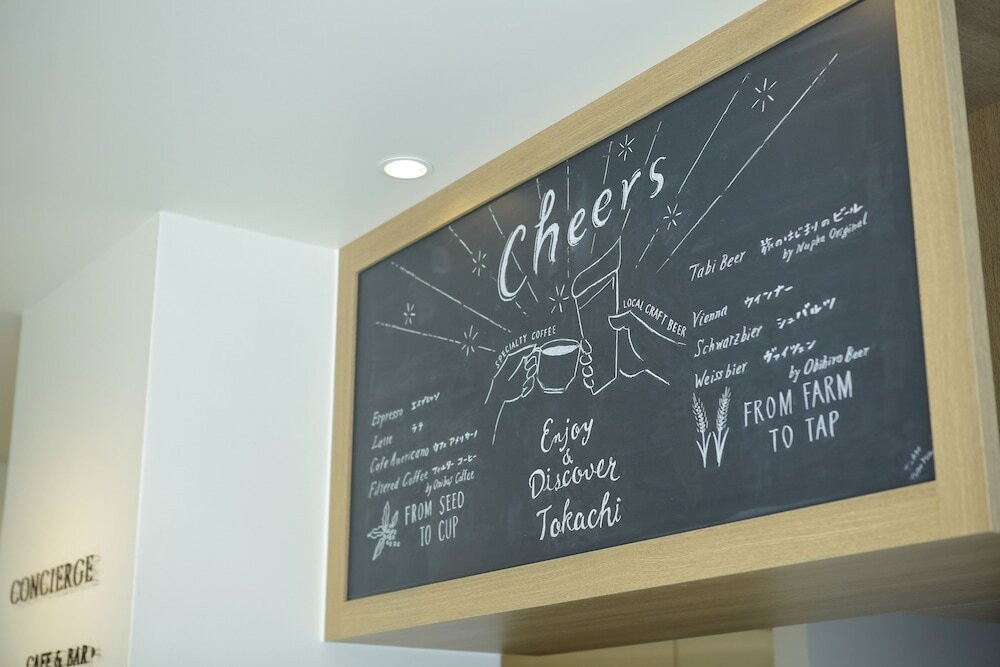 Cheers
SPECIALTY COFFEE
LOCAL CRAFT BEER
Espresso エスプレッソ
Latte ラテ
Cafe Americano カフェ アメリカーノ
Filtered Coffee フィルター コーヒー
by Onibus Coffee
FROM SEED
TO CUP
Enjoy
&
Discover
Tokachi
Tabi Beer 旅のはじまりのビール
by Nupka Original
Vienna ウインナー
Schwarzbier シュバルツ
Weissbier ヴァイツェン
by Obihiro Beer
FROM FARM
TO TAP
CONCIERGE
CAFE & BAR